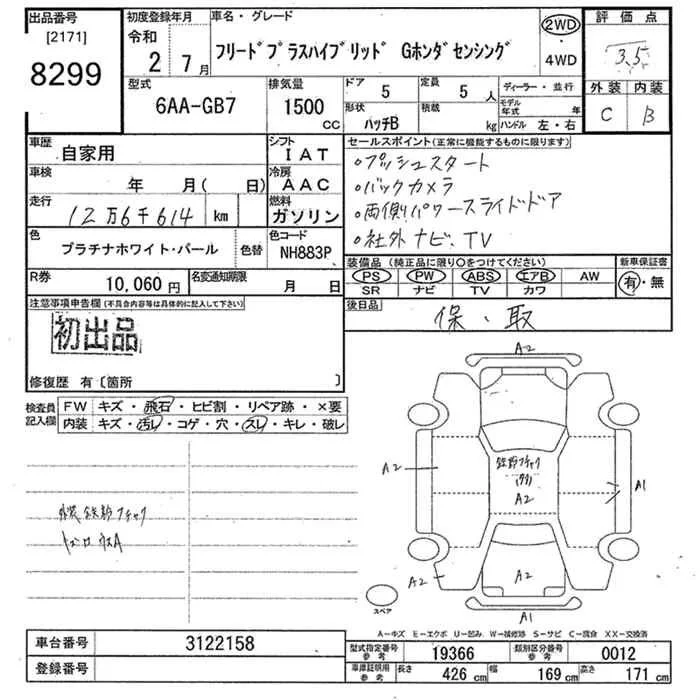 出品番号
[2171]
8299
初度登録年月
令和
2 7月
車名・グレード
フリードプラスハイブリッド Gホンダセンシング
2WD
・
4WD
評価点
3.5
外装 内装
C B
型式
6AA-GB7
排気量
1500
CC
ドア
5
定員
5 人
形状
ハッチB
積載
kg
ディーラー・並行
モデル
年式 年
ハンドル 左・右
車歴
自家用
シフト
IAT
車検
年 月( 日)
冷房
AAC
走行
12万6千614 km
燃料
ガソリン
色
プラチナホワイト・パール
色替
色コード
NH883P
R券
10,060円
名変通知期限
月 日
セールスポイント(正常に機能するものに限ります)
・プッシュスタート
・バックカメラ
・両側パワースライドドア
・社外ナビ、TV
装備品(純正品に限り〇をつけてください)
PS PW ABS エアB AW
SR ナビ TV カワ
新車保証書
有・無
後日品
保・取
注意事項申告欄(不具合内容等は具体的に記入して下さい)
初出品
修復歴 有〔箇所 〕
検査員
記入欄
FW キズ・飛石・ヒビ割・リペア跡・×要
内装 キズ・汚レ・コゲ・穴・スレ・キレ・破レ
外装 鉄粉フチャク
A2
鉄粉フチャク
A2
A2
A1
A2
A2
A1
スペア
A-キズ E-エクボ U-凹み W-補修跡 S-サビ C-腐食 XX-交換済
車台番号
3122158
登録番号
型式指定番号
参考
19366
類別区分番号
参考
0012
車庫証明用
参考
長さ
426 cm
幅
169 cm
高さ
171 cm